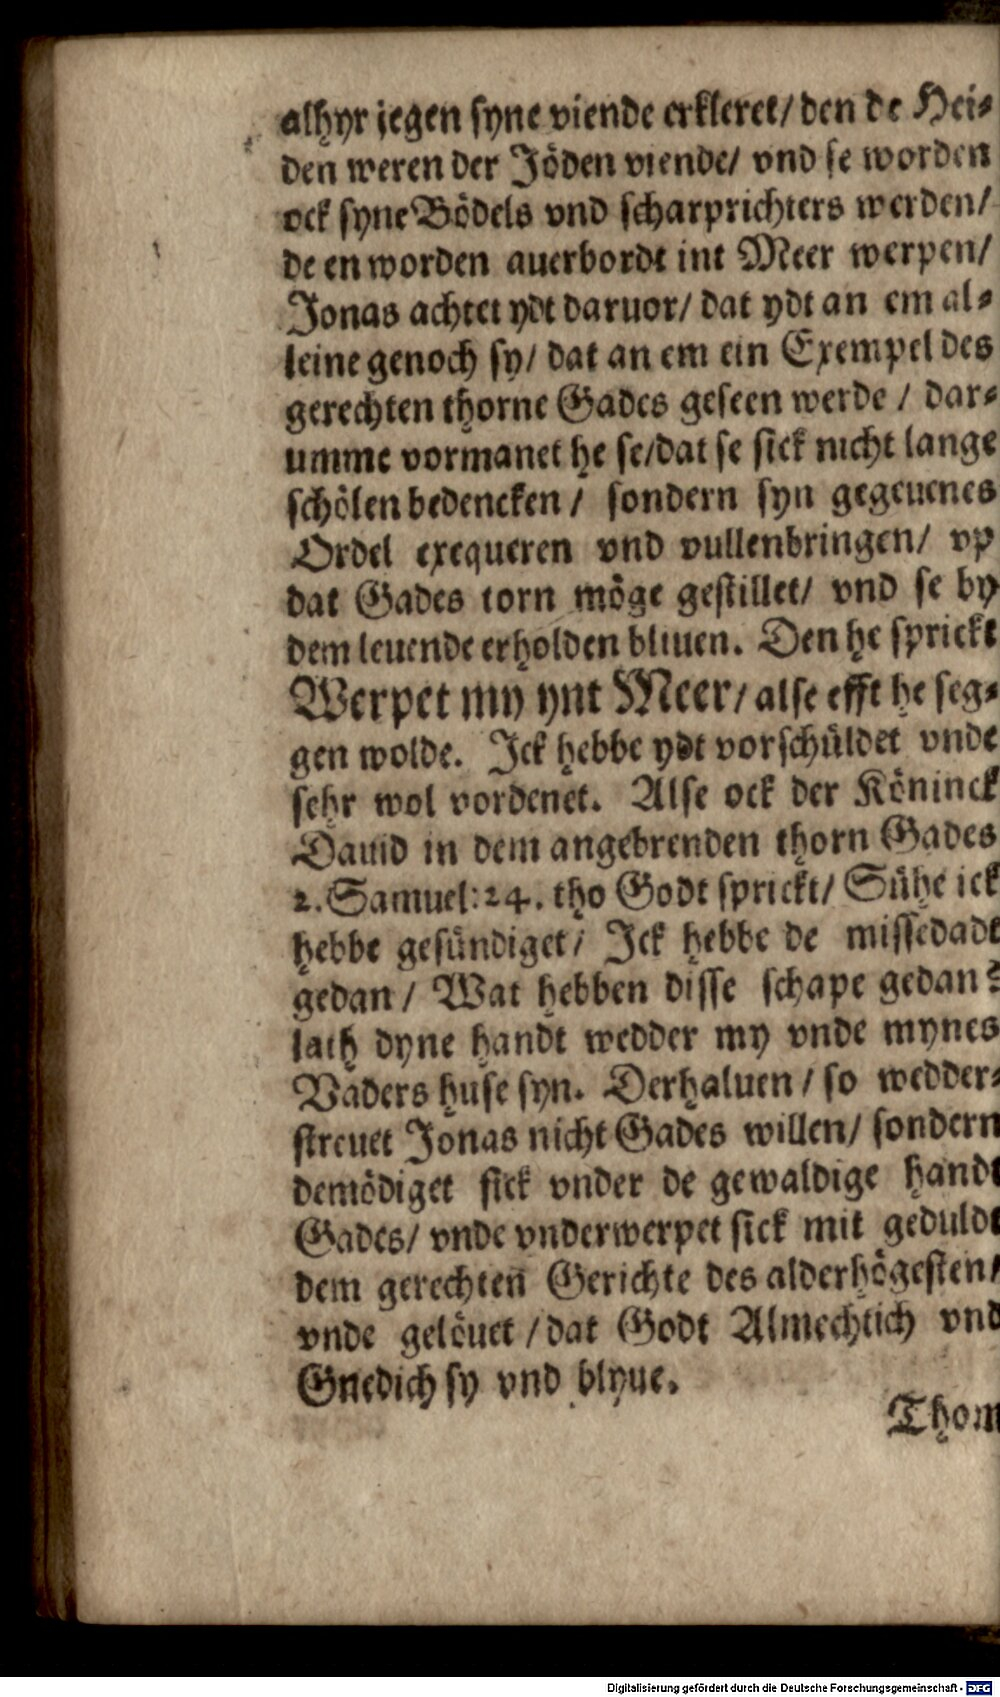 alhyr jegen syne viende erkleret/ den de Hei⸗
den weren der Jöden viende/ vnd se worden
ock syne Bödels vnd scharprichters werden/
de en worden auerbordt int Meer werpen/
Jonas achtet ydt daruor/ dat ydt an em al⸗
leine genoch sy/ dat an em ein Exempel des
gerechten thorne Gades geseen werde / dar⸗
umme vormanet he se/dat se sick nicht lange
schölen bedencken / sondern syn gegeuenes
Ordel exequeren vnd vullenbringen/ vp
dat Gades torn möge gestillet/ vnd se by
dem leuende erholden bliuen. Den he sprickt
Werpet my ynt Meer/ alse efft he seg⸗
gen wolde. Ick hebbe ydt vorschüldet vnde
sehr wol vordenet. Alse ock der Köninck
Dauid in dem angebrenden thorn Gades
2. Samuel: 24. tho Godt sprickt/ Sühe ick
hebbe gesündiget/ Ick hebbe de missedadt
gedan / Wat hebben disse schape gedan?
lath dyne handt wedder my vnde mynes
Vaders huse syn. Derhaluen / so wedder⸗
streuet Jonas nicht Gades willen/ sondern
demödiget sick vnder de gewaldige handt
Gades/ vnde vnderwerpet sick mit geduldt
dem gerechten Gerichte des alderhögesten/
vnde gelöuet / dat Godt Almechtich vnd
Gnedich sy vnd blyue.
Thom
Digitalisierung gefördert durch die Deutsche Forschungsgemeinschaft - DFG